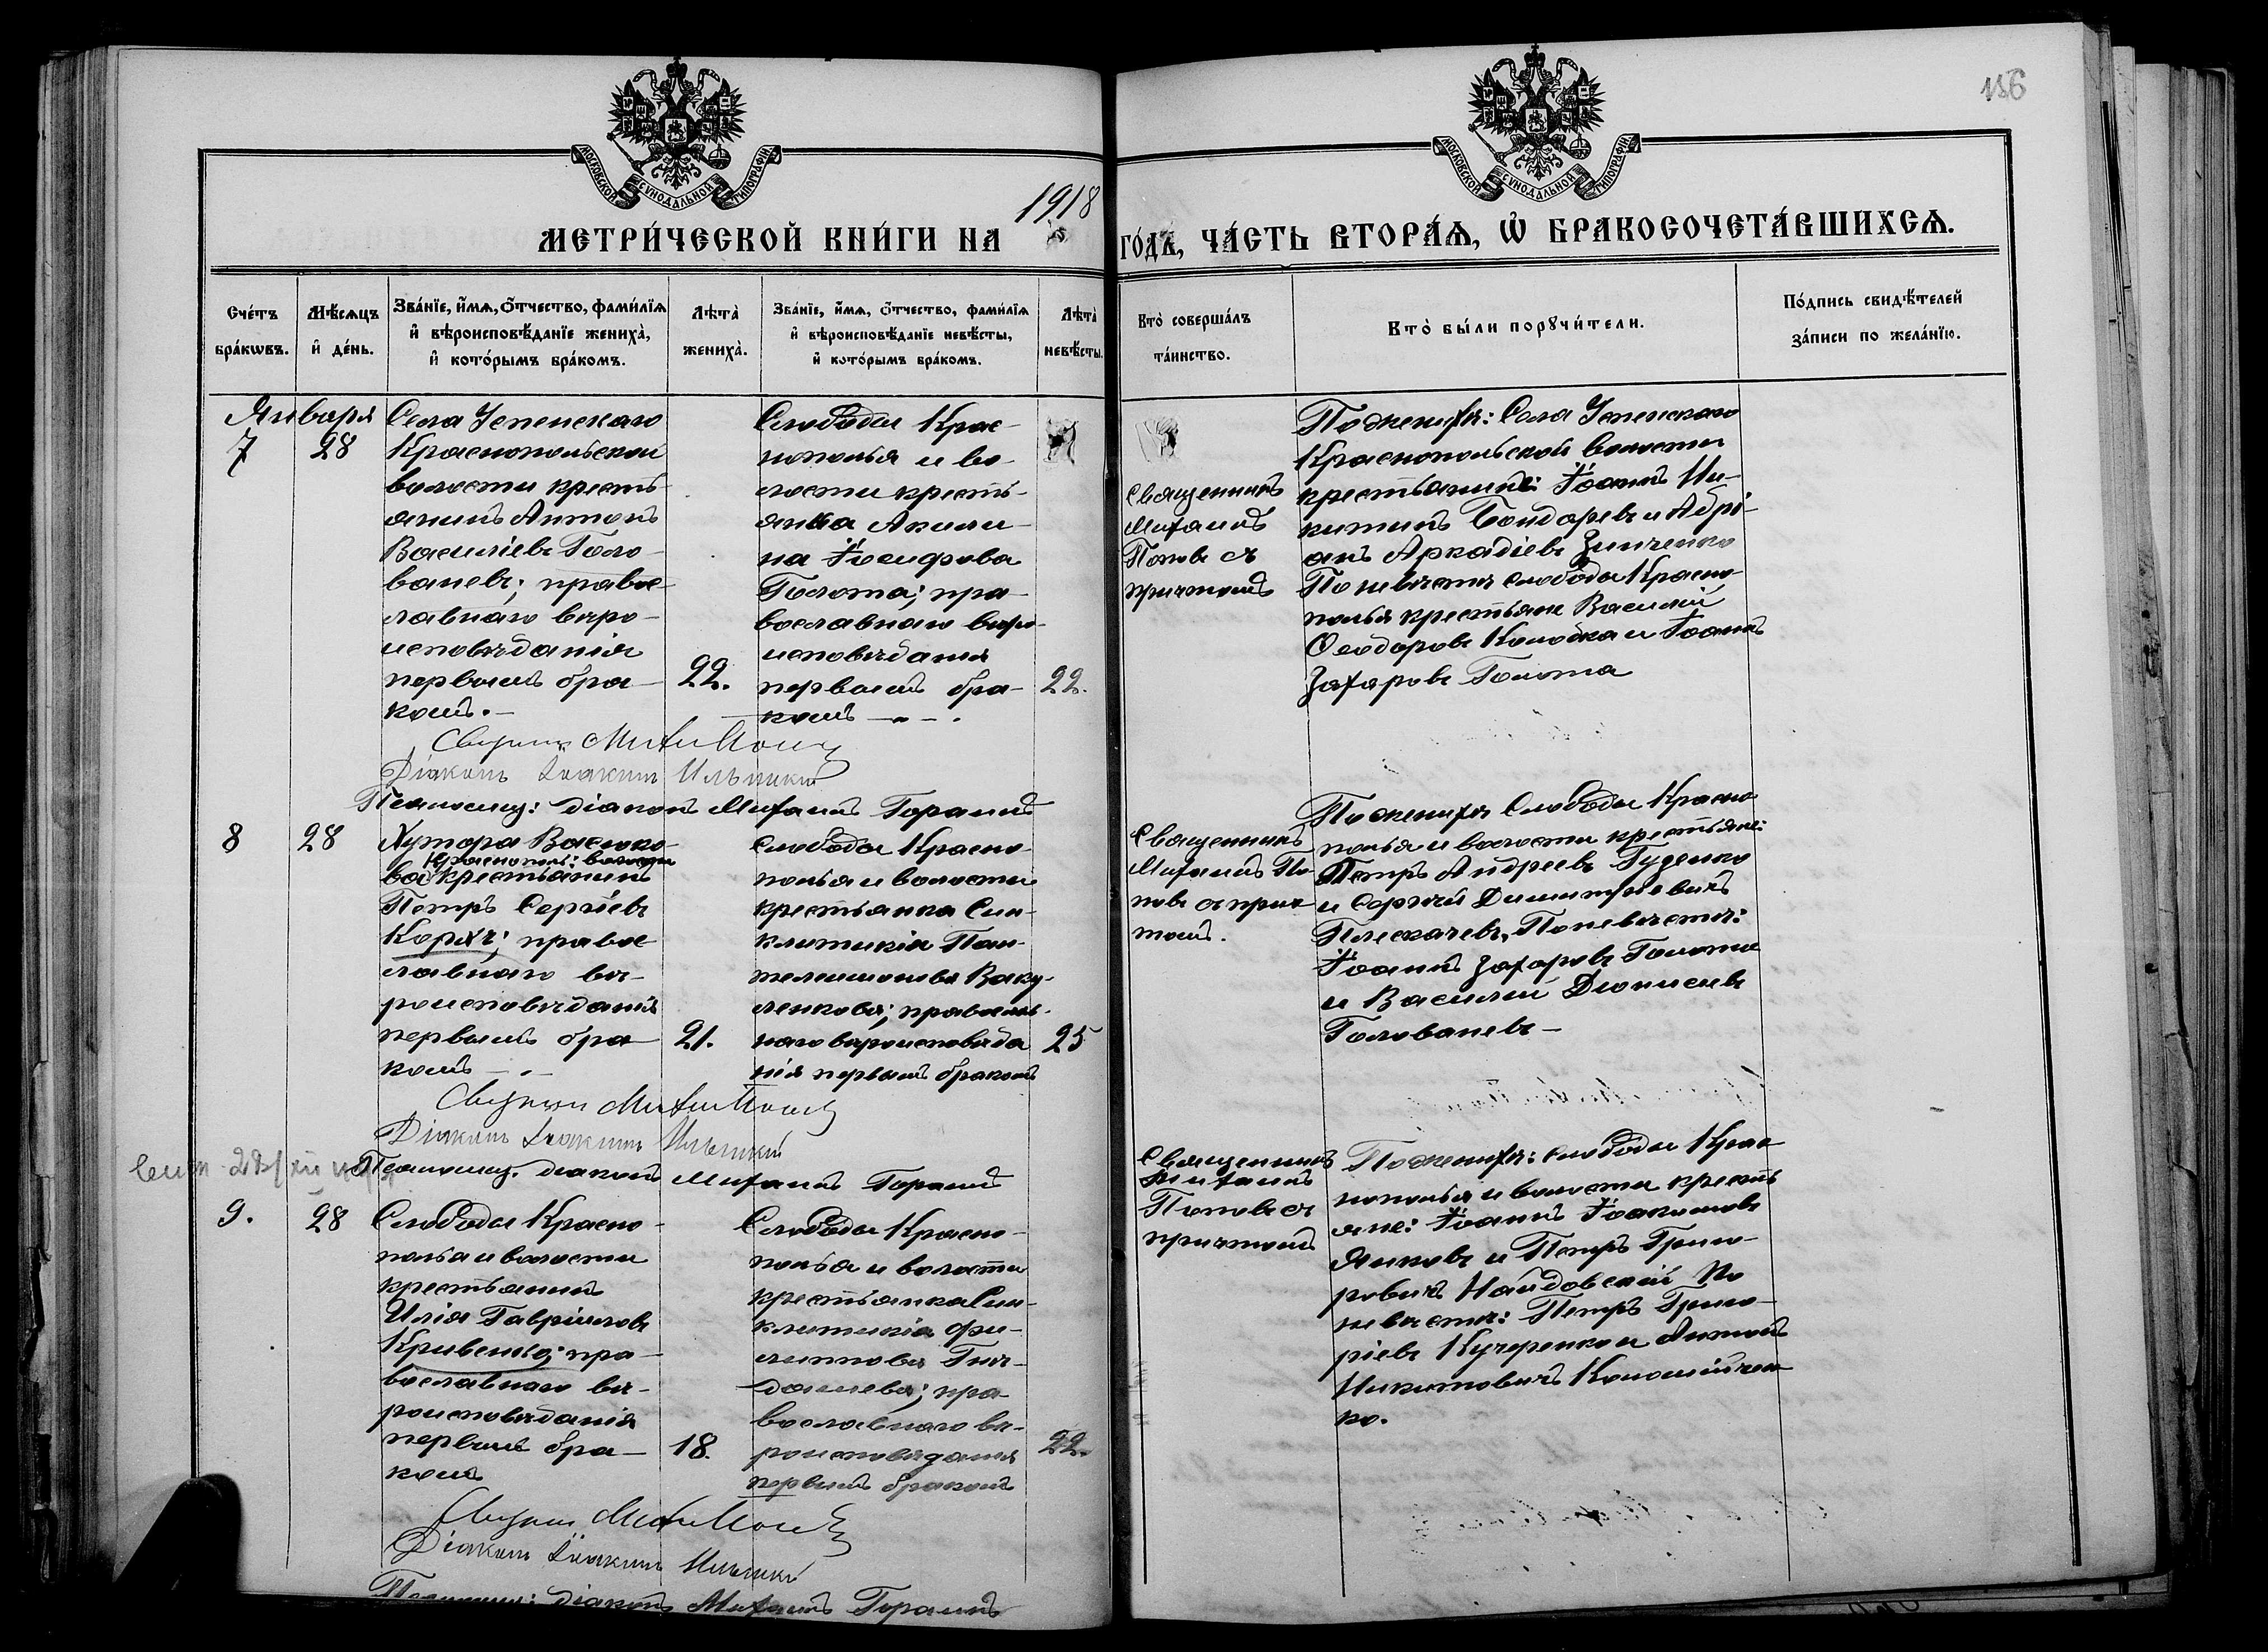 156
МОСКОВСКОЙ СѴНОДАЛЬНОЙ ТИПОГРАФІИ
МОСКОВСКОЙ СѴНОДАЛЬНОЙ ТИПОГРАФІИ
1918
МЕТРИ́ЧЕСКОЙ КНИ́ГИ НА ГО́ДЪ, ЧА́СТЬ ВТОРА́Ѧ, Ѡ҆ БРАКОСОЧЕТА́ВШИХСѦ.
Сче́тъ
бра́кѡвъ.
Мѣ́сѧцъ
и҆ де́нь.
Зва́нїе, и҆́мѧ, о҆́тчество, фами́лїѧ
и҆ вѣроисповѣ́данїе жениха̀,
и҆ кото́рымъ бра́комъ.
Лѣта̀
жениха̀.
Зва́нїе, и҆́мѧ, о҆́тчество, фами́лїѧ
и҆ вѣроисповѣ́данїе невѣ́сты,
и҆ кото́рымъ бра́комъ.
Лѣта̀
невѣ́сты.
Кто̀ соверша́лъ
та́инство.
Кто̀ бы́ли порꙋчи́тели.
По́дпись свидѣ́телей
за́писи по жела́нїю.
Января
7
28
Села Успенскаго
Краснопольской
волости кресть-
янинъ Антонъ
Василіевъ Голо-
ваневъ; правос-
лавнаго вѣро-
исповѣданія
первымъ бра-
комъ.
22.
Слободы Крас-
нополья и во-
лости кресть-
янка Акили-
на Іосифова
Голота; пра-
вославнаго вѣро-
исповѣданія
первымъ бра-
комъ
22.
Священникъ
Михаилъ
Поповъ съ
причтомъ
По женихѣ: Села Успенскаго
Краснопольской волости
крестьяне: Іоаннъ Ни-
китинъ Бондаревъ и Адрі-
анъ Аркадіевъ Зинченко
По невѣстѣ слободы Красно-
полья крестьяне Василій
Ѳеодоровъ Колодка и Іоаннъ
Захаровъ Голота
Діаконъ Іоакимъ Ильицкій
Псаломщ: діаконъ Михаилъ Гораинъ
8
28
Хутора Васюко-
Краснополь: волости
ва крестьянинъ
Петръ Сергіевъ
Корхъ; правос-
лавнаго вѣ-
роисповѣданія
первымъ бра-
комъ
21.
Слободы Красно-
полья и волости
крестьянка Син-
клитикія Пан-
телеимонова Ваку-
ленкова; православ-
наго вѣроисповѣда-
нія первымъ бракомъ
25
Священникъ
Михаилъ По-
повъ съ прич-
томъ.
По женихѣ Слободы Красно-
полья и волости крестьяне:
Петръ Андреевъ Гуденко
и Сергѣй Димитріевичъ
Плескачевъ, По невѣстѣ:
Іоаннъ Захаровъ Голота
и Василій Діонисіевъ
Голованевъ
Діаконъ Іоакимъ Ильицкій
Псаломщ. діаконъ Михаилъ Гораинъ
9.
28
Слободы Красно-
полья и волости
крестьянинъ
Илія Гавріиловъ
Кривенко; пра-
вославнаго вѣ-
роисповѣданія
первымъ бра-
комъ
18.
Слободы Красно-
полья и волости
крестьянка Син-
клитикія Фи-
липпова
пра-
вославнаго вѣ-
роисповѣданія
первымъ бракомъ
22.
Священникъ
Михаилъ
Поповъ съ
причтомъ
По женихѣ: слободы Крас-
нополья и волости кресть-
яне: Іоаннъ Іоакимовъ
Яковъ и Петръ Григо-
ровичъ Найдовскій По
невѣстѣ: Петръ Григо-
ріевъ Кучеренко и Антонъ
Никитовичъ Коломійчен-
ко.
Діаконъ Іоакимъ Ильицкій
Псаломщ: діаконъ Михаилъ Гораинъ